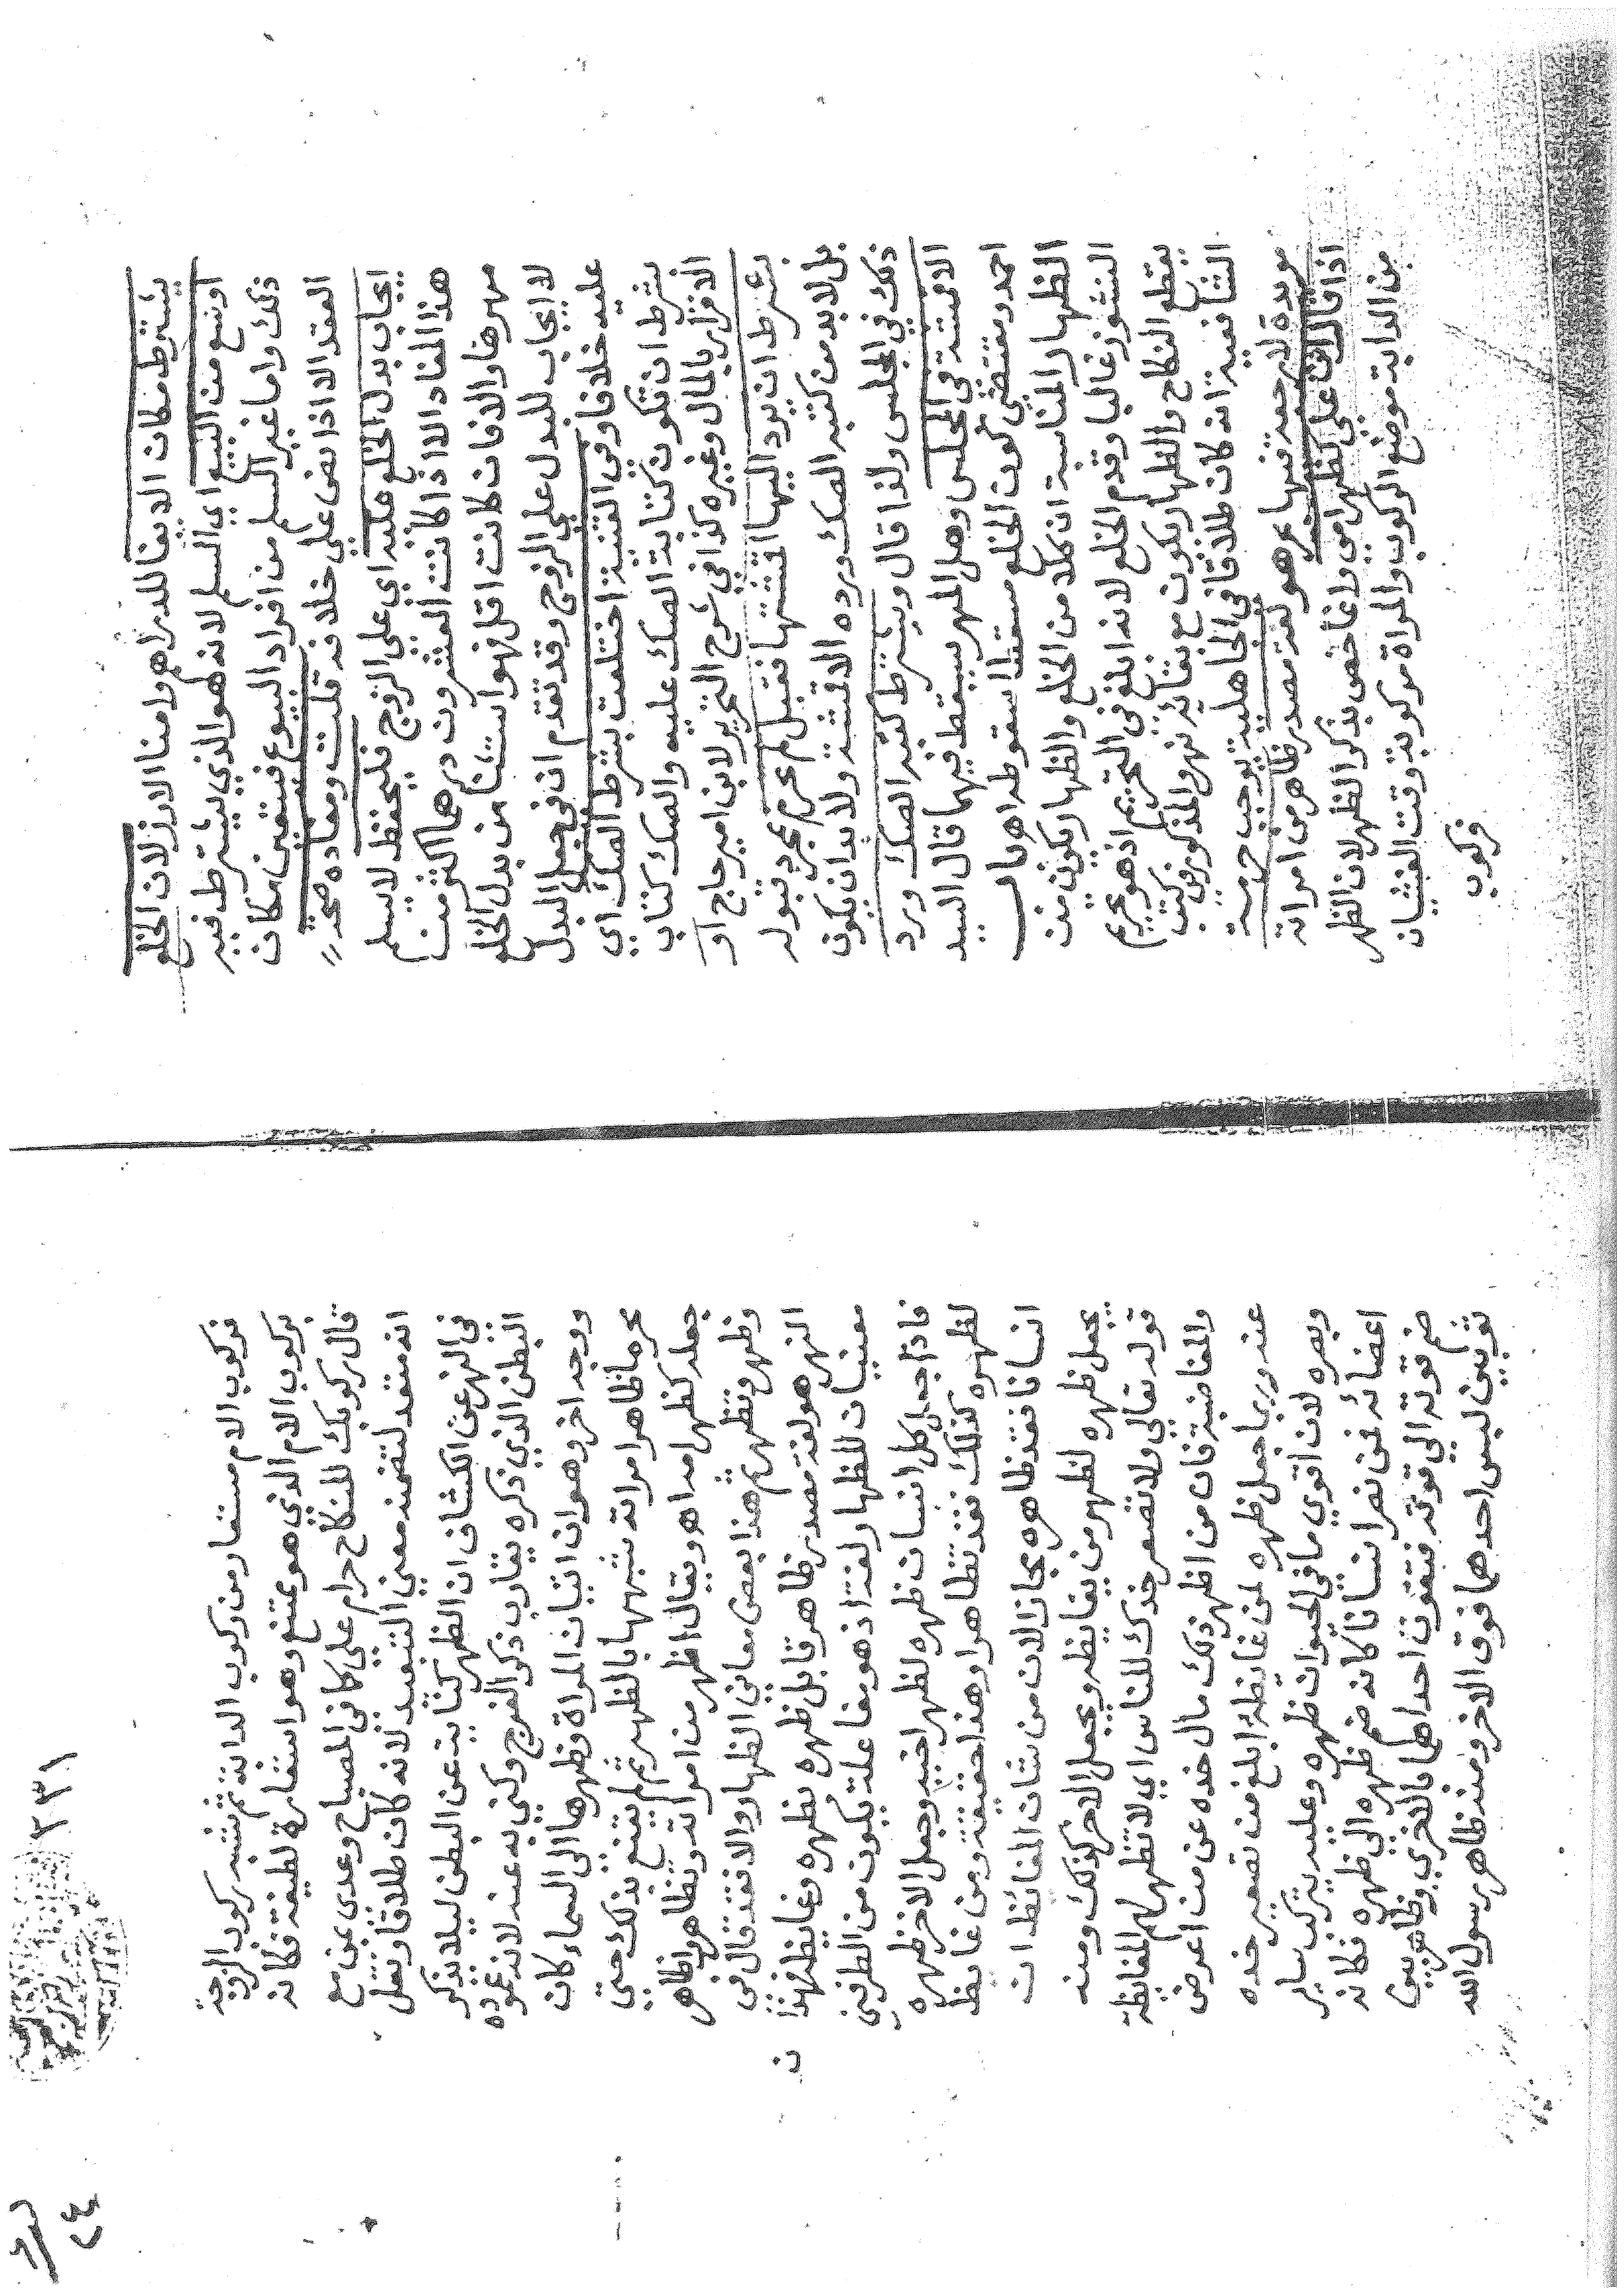 يشترط مكان الايفا للدراهم وامنا الارز لان الخلع
اوسع من البيع اي السلم لانه هو الذي يشترط فيه
ذلك واما غير السلم من افراد البيوع فيتعين مكان
العقد الا اذا نص علي خلافه قلت ومفاده صحة
ايجاب بدل الخلع عليه اي علي الزوج فليحفظ لا يسلم
هذا المفاد الا اذا كانت العشرون درهما اكثر من
مهرها والا فان كانت اقل فهو استثنا من بدل الخلع
لا ايجاب للبدل علي الزوج وقد تقدم ان في جعل البدل
عليه خلافا وفي القنية اختلعت بشرط الصك اي
بشرط ان تكون كتابة الصك عليه والصك كتاب
الاقرار بالمال وغيره كذا في شرح التحرير لابن امير حاج او
بشرط ان يرد اليها اقمشتها فقبل لم تحرم بمجرد قبوله
بل لا بد من كتبه الصك ورده الاقمشة ولا بد ان يكون
ذلك في المجلس ولذا قال ويشترط كتبه الصك ورد
الاقمشة في المجلس وهل المهر يسقط فيهما قال السيد
احمد ومقتضي كون الخلع مسقطا سقوطه اه باب
الظهار المناسبة ان كلا من الخلع والظهار يكون من
النشوز غالبا وقدم الخلع لانه ابلغ في التحريم اذ هو تحريم
يقطع النكاح والظهار يكون مع بقائه نهر والمذكور في كتب
الشافعية انه كان طلاقا في الجاهلية يوجب حرمة
موبدة لا رجعة فيها هو لغة مصدر ظاهر من امراته
اذا قال انت علي كظهر امي وانما خص بذكر الظهر لان الظهر
من الدابة موضع الركوب والمراة مركوبة وقت الغشيان
فركوب
٢٣١
٢٤
فركوب الام مستعار من ركوب الدابة ثم شبه ركوب الزوجة
بركوب الام الذي هو ممتنع وهو استعارة لطيفة فكانه
قال ركوبك للنكاح حرام علي كما في المصباح وعدي بمن مع
انه متعد لتضمنه معني التبعيد لانه كان طلاقا ونقل
في النهر عن الكشاف ان الظهر كناية عن البطن ليلا يذكر
البطن الذي ذكره يقارب ذكر الفرج وكني به عنه لانه عموده
ووجه اخر وهو ان اتيان المراة وظهرها الي السماء كان
محرما ظاهر امراته شبهها بالظهر ثم لم يقنع بذلك حتي
جعله كظهر امه اه ويقال اظهر من امراته وتظاهر واظاهر
وظهر وتظهر ثم هذا بعض معاني الظهار والا فقد قال في
النهر هو لغة مصدر ظاهر قابل ظهره بظهره وغايظه ثم ان
معنيات للظهار لغة اذ هو مفاعلة يكون من الطرفين
فاذا جعل كل انسان ظهره لظهر اخيه وجعل الاخر ظهره
لظهره كذلك فقد تظاهرا وهذا حقيقة ومن غايظ
انسانا فقد ظاهره مجاز الان من شان المغائظ ان
يجعل ظهره لظهر من يغايظه ويجعل الاخر كذلك ومنه
قوله تعالي ولا تصعر خدك للناس اي لا تظهر لهم المغايظة
والمغاضبة فان من اظهر ذلك مال خده عن من اعرض
عنه وربما جعل ظهره لمن غايظه ابلغ من تصعير خده
وبصره لان اقوي ما في الحيوان ظهره وعليه يتركب ساير
اعضائه فمن نصر انسانا كانه ضم ظهره الي ظهره فكانه
ضم قوته الي قوته فتقوت احداهما بالاخري وظاهر بين
ثوبين لبس احدهما فوق الاخر ومنه ظاهر رسول الله